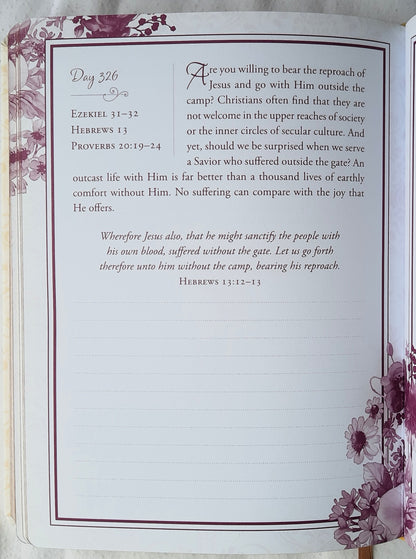 Day 326
EZEKIEL 31–32
HEBREWS 13
PROVERBS 20:19–24
Are you willing to bear the reproach of
Jesus and go with Him outside the
camp? Christians often find that they are
not welcome in the upper reaches of society
or the inner circles of secular culture. And
yet, should we be surprised when we serve
a Savior who suffered outside the gate? An
outcast life with Him is far better than a thousand lives of earthly
comfort without Him. No suffering can compare with the joy that
He offers.
Wherefore Jesus also, that he might sanctify the people with
his own blood, suffered without the gate. Let us go forth
therefore unto him without the camp, bearing his reproach.
HEBREWS 13:12–13